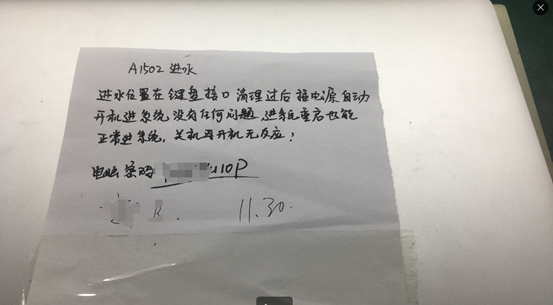 A1502 进水
进水位置在键盘接口 清理过后 接电源自动
开机进系统 没有任何问题,进系统重启也能
正常进系统,关机再开机无反应?
电脑密码 10P
11.30